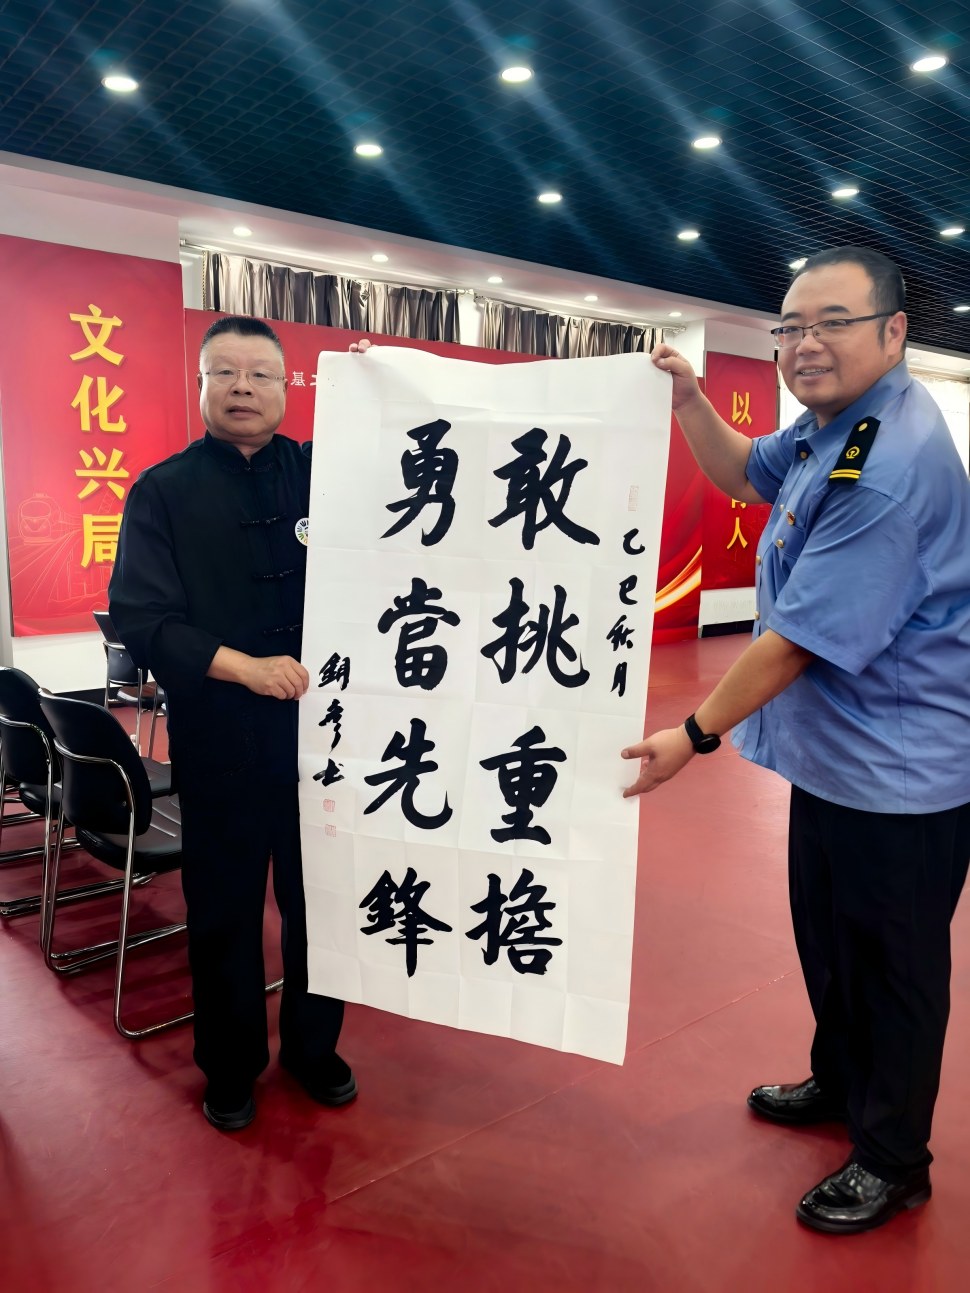 乙巳秋月
敢挑重擔
勇當先鋒
文化兴局
以
人
基